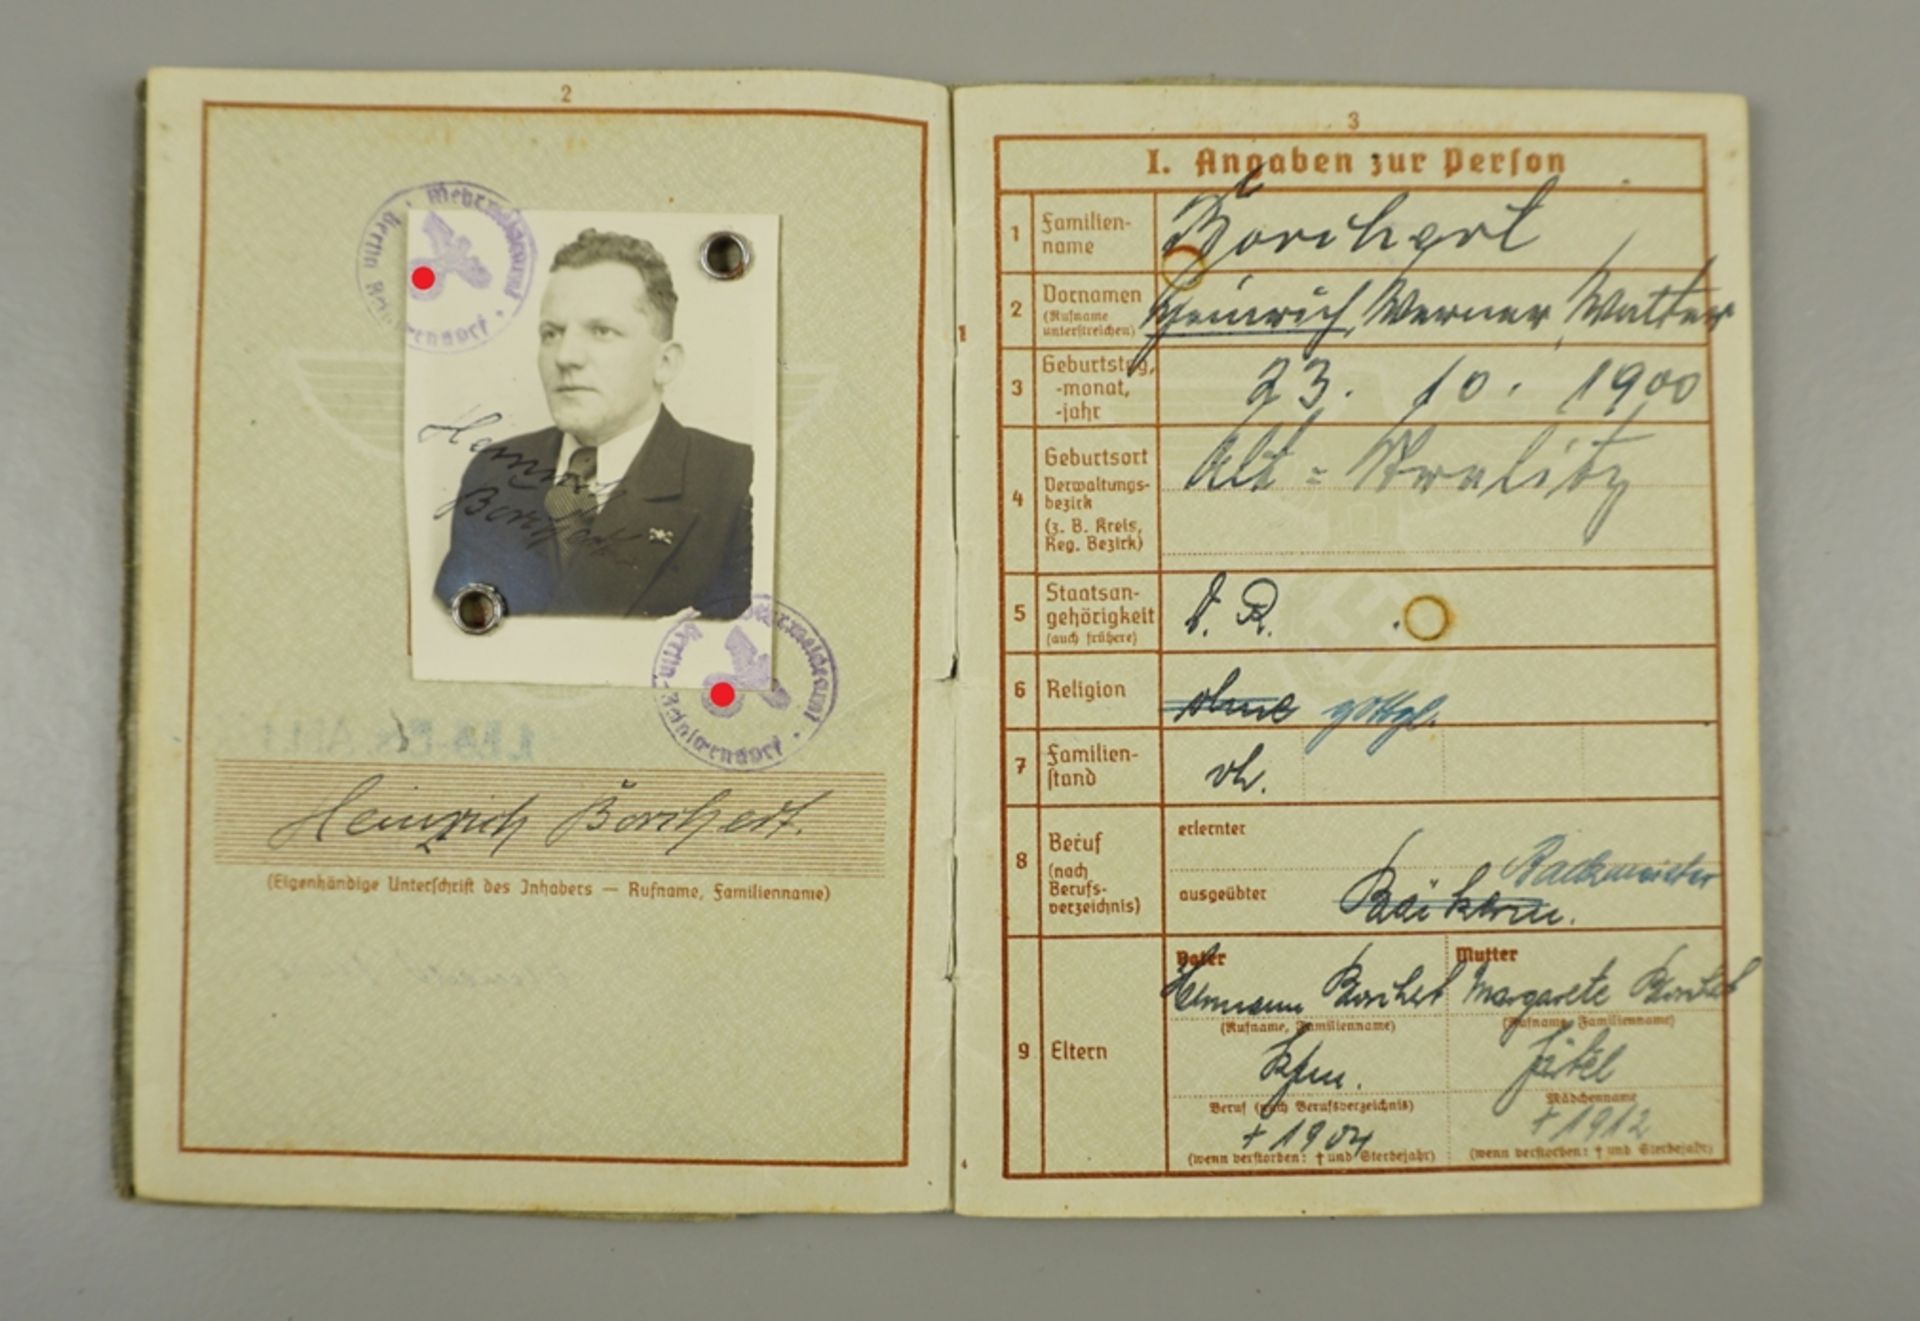 2
Wehrmeldeamt
Berlin
Heinrich
Borchert
Wehrmeldeamt
Berlin-
Heinrich Borchert.
(Eigenhändige Unterschrift des Inhabers — Rufname, Familienname)
3
I. Angaben zur Person
1 Familien-
name
Borchert
2 Vornamen
(Rufname
unterstreichen)
Heinrich, Werner, Walter
3 Geburtstag,
-monat,
-jahr
23. 10. 1900
4 Geburtsort
Verwaltungs-
bezirk
(z. B. Kreis,
Reg. Bezirk)
Alt-
5 Staatsan-
gehörigkeit
(auch frühere)
D. R.
6 Religion
ohne gottgl.
7 Familien-
stand
vh.
8 Beruf
(nach
Berufs-
verzeichnis)
erlernter
Backmeister
ausgeübter
9 Eltern
Vater
Hermann Borchert
(Rufname, Familienname)
Kfm.
Beruf (nach Berufsverzeichnis)
+ 1904
(wenn verstorben: † und Sterbejahr)
Mutter
Margarete Borchert
(Rufname, Familienname)
Mädchenname
+ 1912
(wenn verstorben: † und Sterbejahr)
1
4